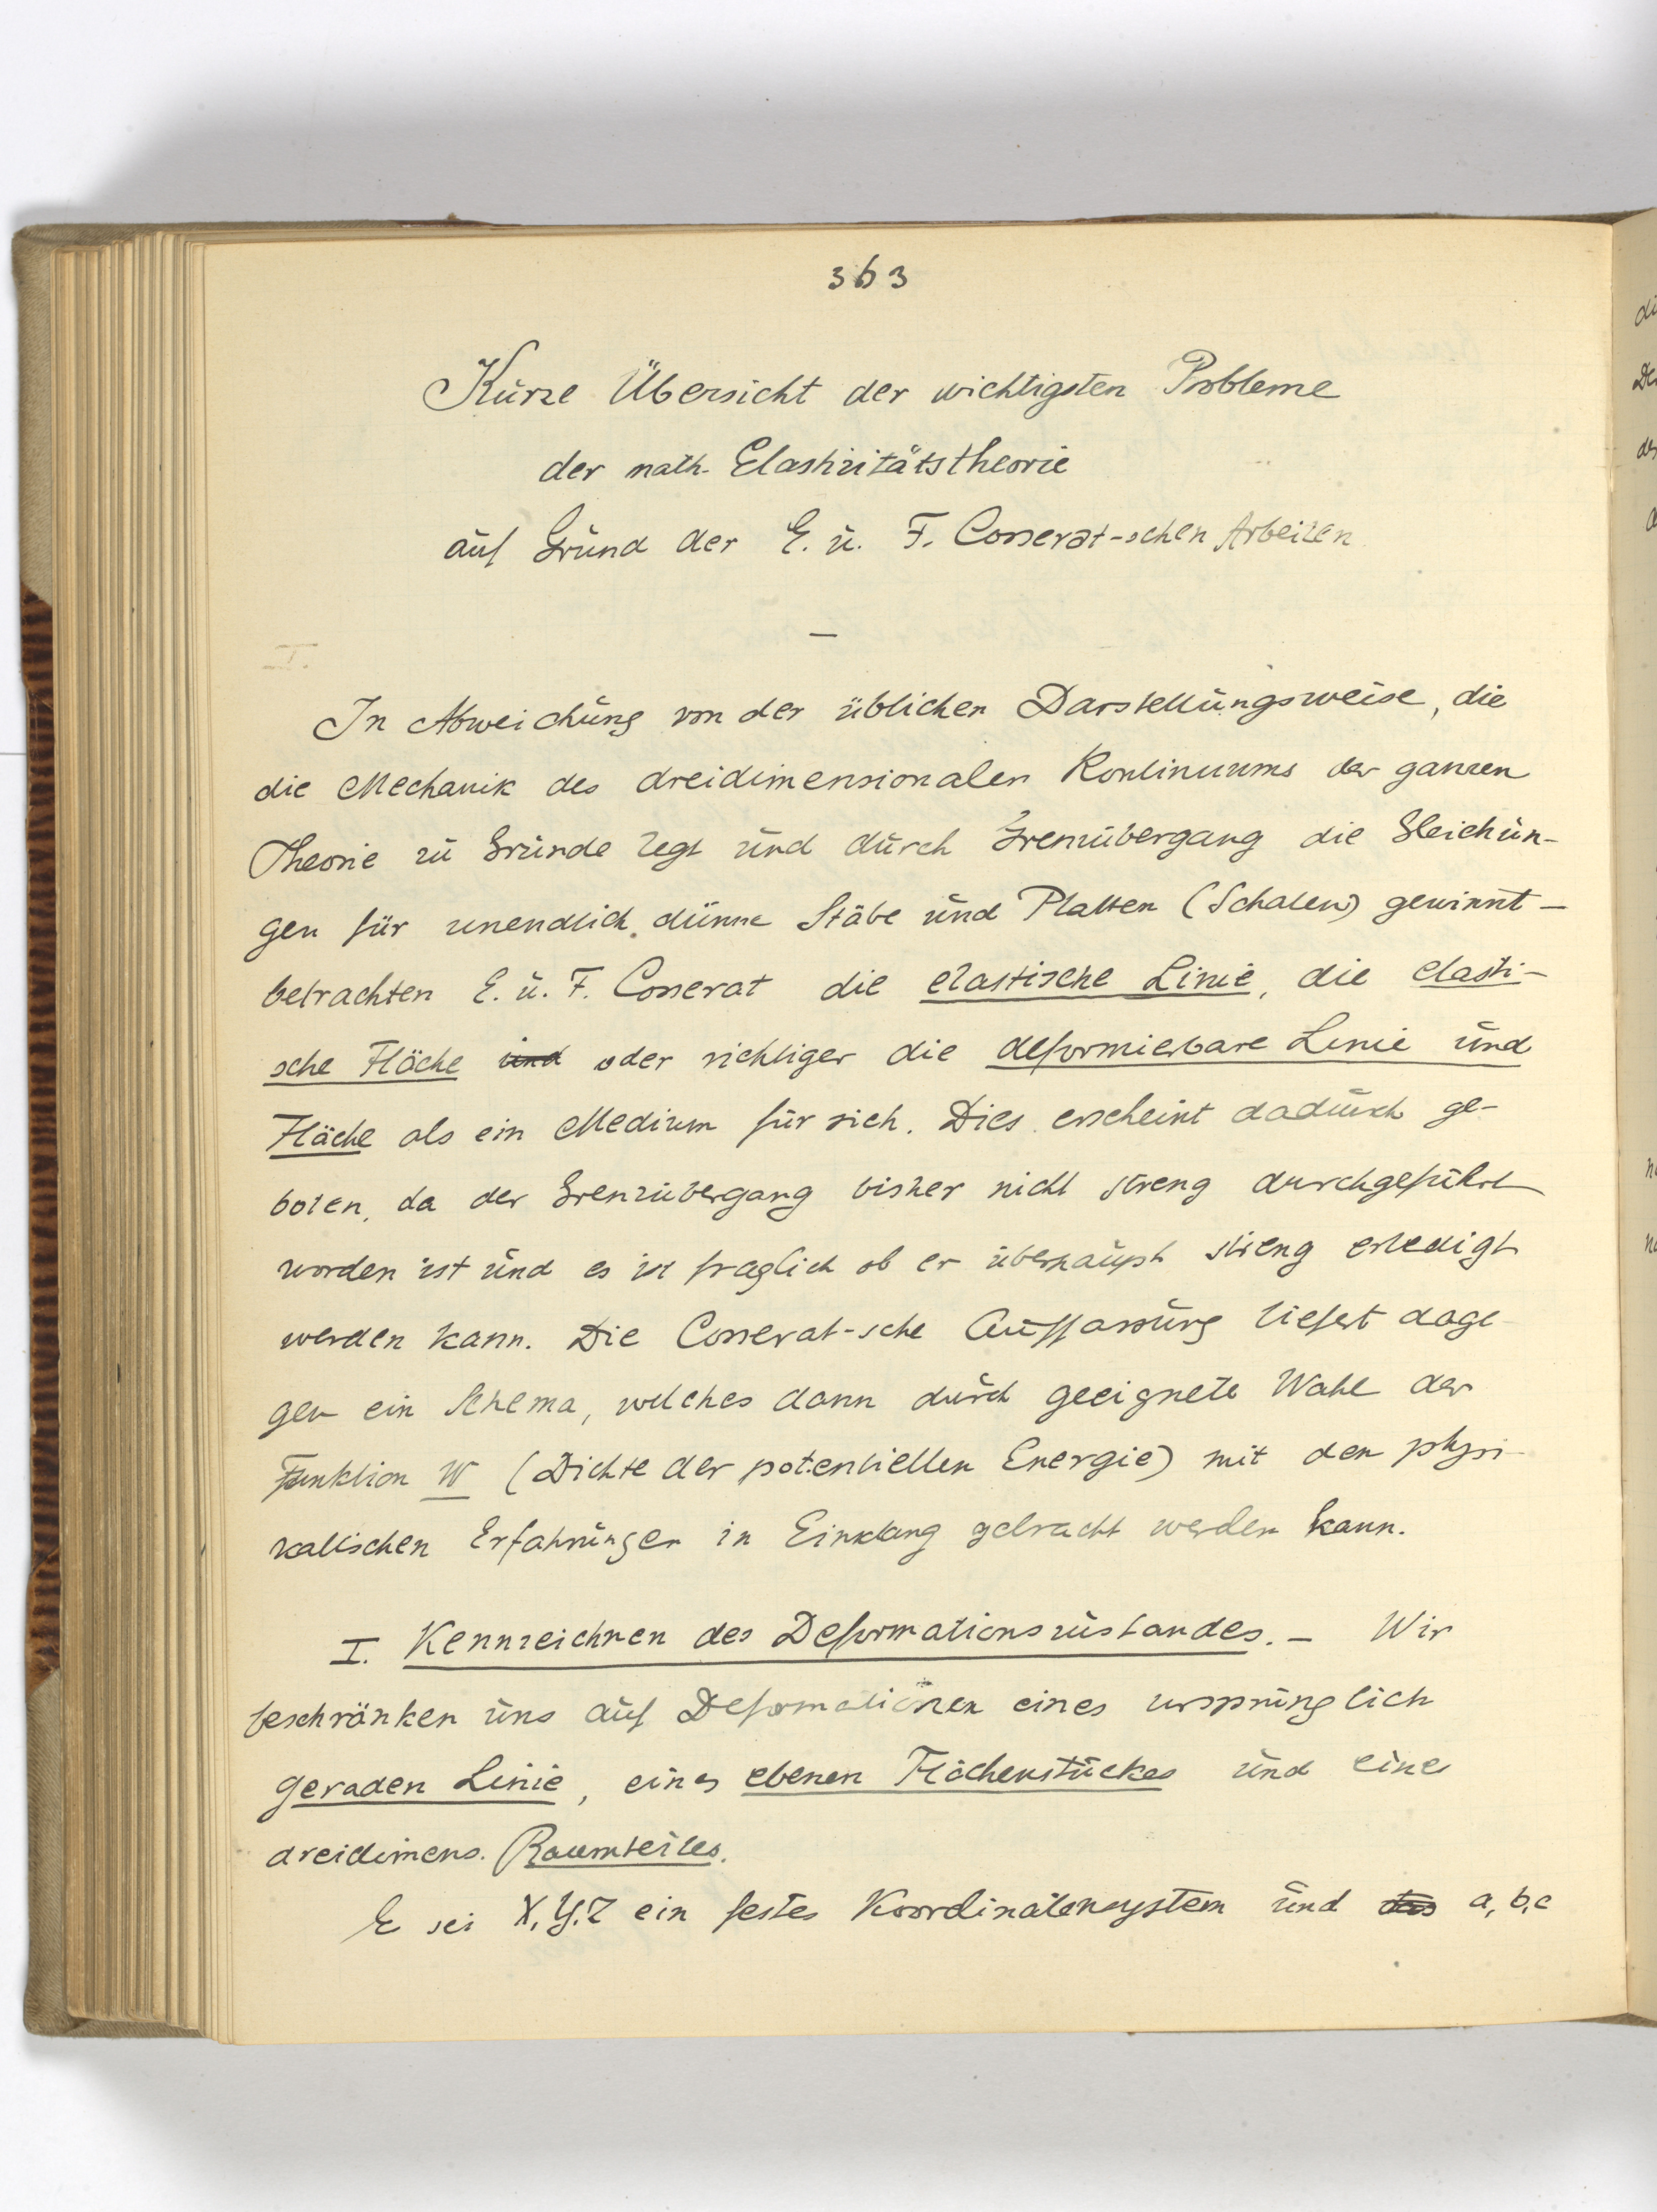 363
Kurze Übersicht der wichtigsten Probleme
der math. Elastizitätstheorie
auf Grund der E. u. F. Cosserat-schen Arbeiten
—
I.
In Abweichung von der üblichen Darstellungsweise, die
die Mechanik des dreidimensionalen Kontinuums der ganzen
Theorie zu Grunde legt und durch Grenzübergang die Gleichun-
gen für unendlich dünne Stäbe und Platten (Schalen) gewinnt –
betrachten E. u. F. Cosserat die elastische Linie, die elasti-
sche Fläche und oder richtiger die deformierbare Linie und
Fläche als ein Medium für sich. Dies erscheint dadurch ge-
boten, da der Grenzübergang bisher nicht streng durchgeführt
worden ist und es ist fraglich ob er überhaupt streng erledigt
werden kann. Die Cosserat-sche Auffassung liefert dage-
gen ein Schema, welches dann durch geeignete Wahl der
Funktion W (Dichte der potentiellen Energie) mit den physi-
kalischen Erfahrungen in Einklang gebracht werden kann.
I. Kennzeichnen des Deformationszustandes. – Wir
beschränken uns auf Deformationen eines ursprünglich
geraden Linie, eines ebenen Flächenstückes und eines
dreidimens. Raumteiles.
E sei X, Y, Z ein festes Koordinatensystem und das a, b, c
di
De
des